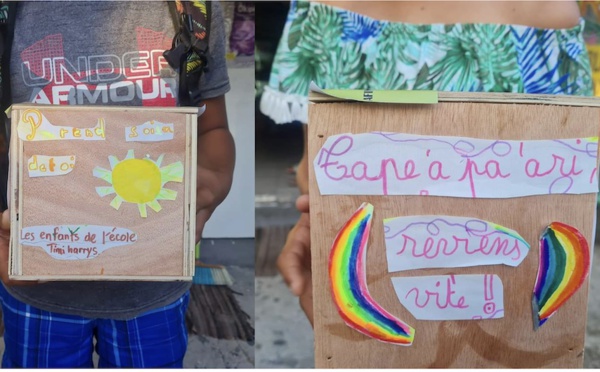 UNDER
ARMOUR
Prend soin
de toi
Les enfants de l'école
Timi harrys
Tape'a pa'ari,
reviens
vite !